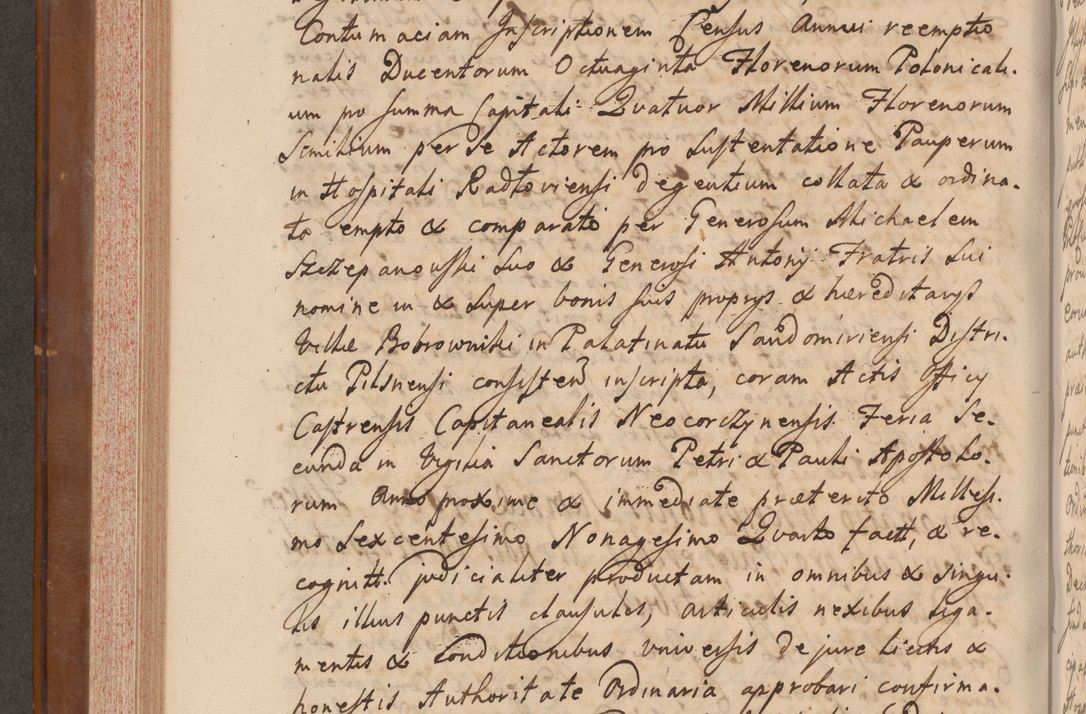 Contumaciam Inscriptionem Census Annui reemptio
nalis Ducentorum Octuaginta Florenorum Polonicali.
um pro summa Capitali Quatuor Millium Florenorum
Similium per se Actorem pro Sustentatione Pauperum
in Hospitali Radłoviensi degentium collata & ordina.
ta empto & comparato per Generosum Michaelem
Szczepanouski suo & Generosi Antonij Fratris sui
nomine in & super bonis suis proprys & hæreditarys
Villæ Bobrowniki in Palatinatu Sandomiriensi Distri.
ctu Pilsnensi consisten inscripta, coram Actis Officy
Castrensis Capitanealis Neocorczynensis Feria Se.
cunda in Vigilia Sanctorum Petri & Pauli Apostolo.
rum Anno proxime & immediate præterito Millesi.
mo Sexcentesimo Nonagesimo Quarto fact, & re.
cognitt. judicialiter productam in omnibus & singu.
lis illius punctis clausulis, articulis nexibus liga.
mentis & Conditionibus universis de jure licitis &
honestis Authoritate Ordinaria approbari confirma.